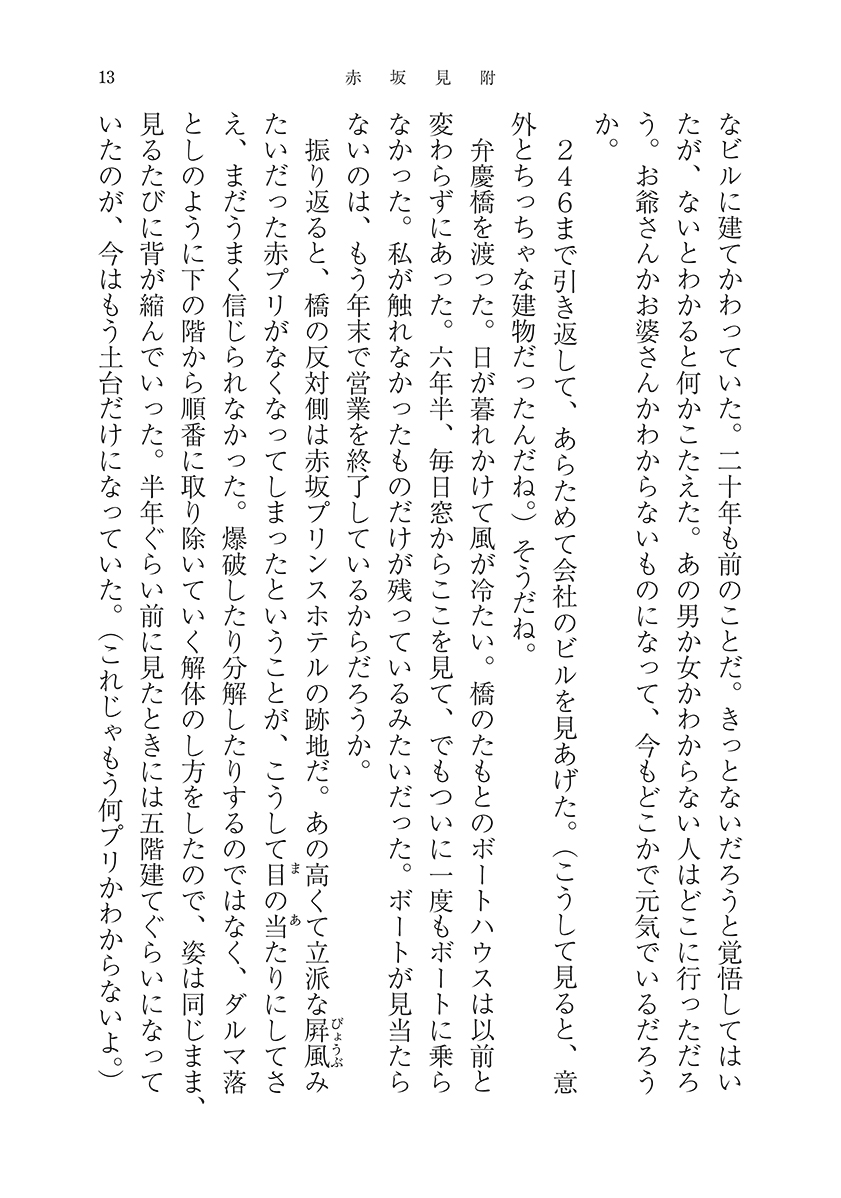 13
赤坂見附
なビルに建てかわっていた。二十年も前のことだ。きっとないだろうと覚悟してはい
たが、ないとわかると何かこたえた。あの男か女かわからない人はどこに行っただろ
う。お爺さんかお婆さんかわからないものになって、今もどこかで元気でいるだろう
か。
２４６まで引き返して、あらためて会社のビルを見あげた。（こうして見ると、意
外とちっちゃな建物だったんだね。）そうだね。
弁慶橋を渡った。日が暮れかけて風が冷たい。橋のたもとのボートハウスは以前と
変わらずにあった。六年半、毎日窓からここを見て、でもついに一度もボートに乗ら
なかった。私が触れなかったものだけが残っているみたいだった。ボートが見当たら
ないのは、もう年末で営業を終了しているからだろうか。
振り返ると、橋の反対側は赤坂プリンスホテルの跡地だ。あの高くて立派な屛風み
びょうぶ
たいだった赤プリがなくなってしまったということが、こうして目の当たりにしてさ
ま あ
え、まだうまく信じられなかった。爆破したり分解したりするのではなく、ダルマ落
としのように下の階から順番に取り除いていく解体のし方をしたので、姿は同じまま、
見るたびに背が縮んでいった。半年ぐらい前に見たときには五階建てぐらいになって
いたのが、今はもう土台だけになっていた。（これじゃもう何プリかわからないよ。）